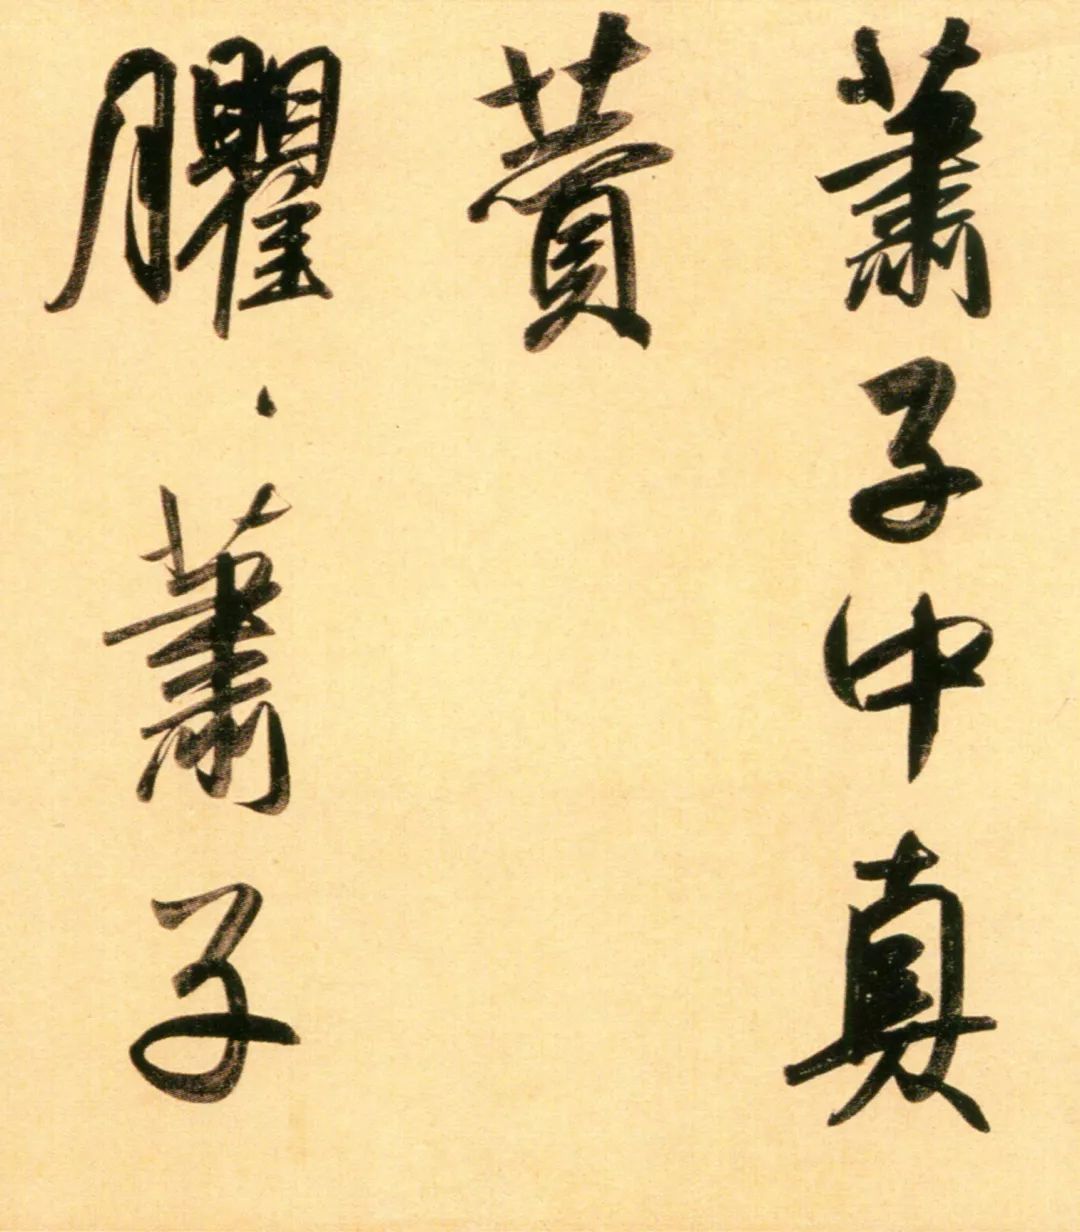 蕭子中真
贊
臞、蕭子